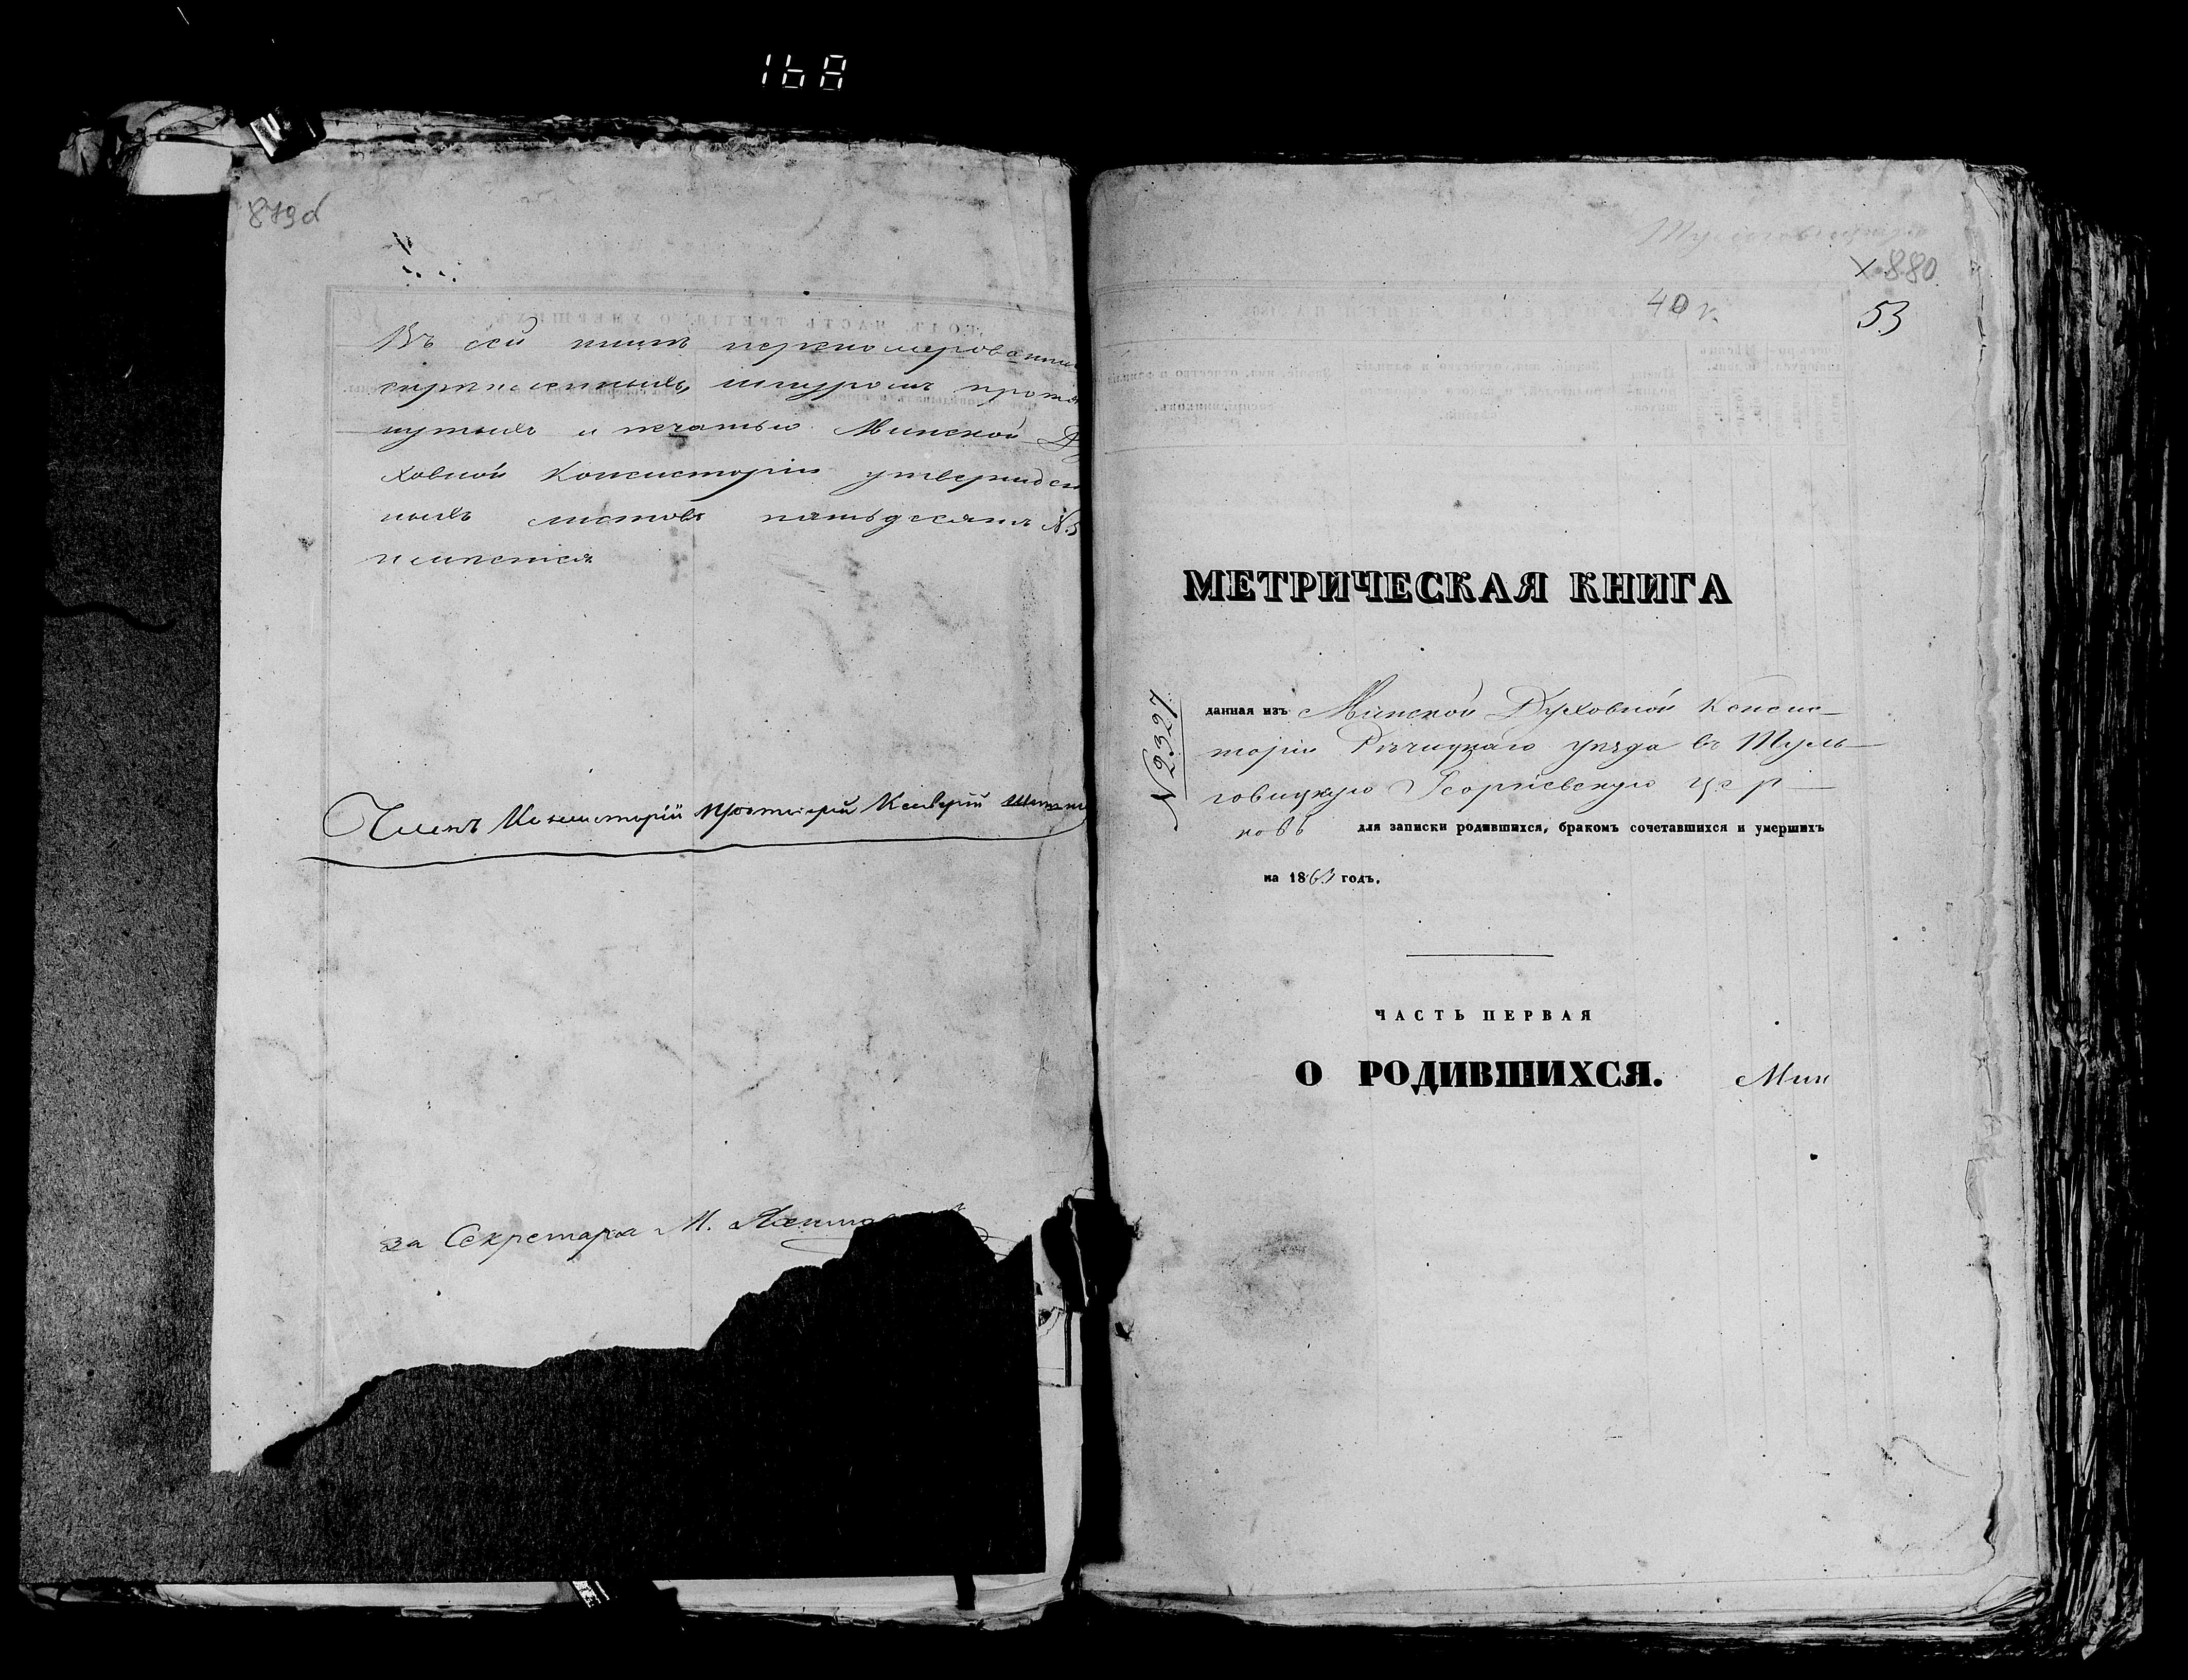 168
879об
Въ сей книгѣ перенумерованны
скрѣпленныхъ, шнуромъ протя
нутыхъ и печатью Минской Ду
ховной Консисторіи утвержден
ныхъ листовъ пятьдесятъ N. 5
имѣется
Членъ Консисторіи Протоіерей
за Секретаря М.
880
40 г.
53
МЕТРИЧЕСКАЯ КНИГА
N 2327
данная изъ Минской Духовной Консис-
торіи Рѣчицкаго уѣзда въ Туль-
говицкую Георгіевскую цер-
ковь для записки родившихся, бракомъ сочетавшихся и умершихъ
на 1863 годъ.
ЧАСТЬ ПЕРВАЯ
О РОДИВШИХСЯ. Мин